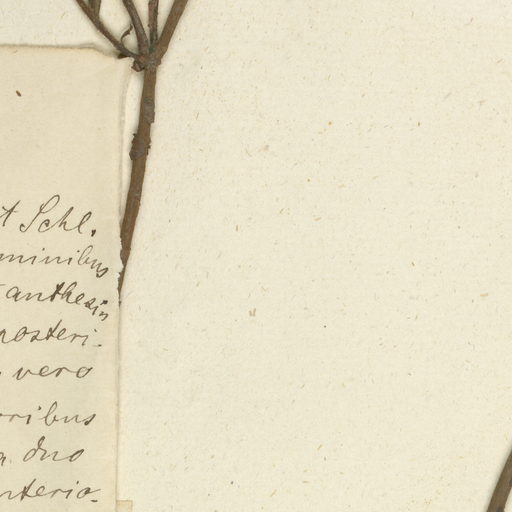 t Schl.
minibus
anthesin
posteri-
vero
oribus
a duo
nterio-